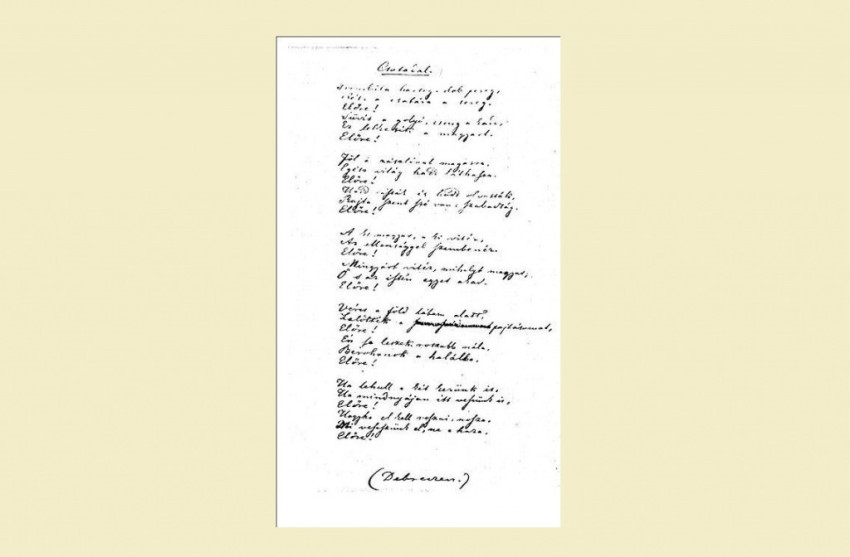 Csatadal.
Trombita harsog, dob pereg,
Kész a csatára a sereg.
Előre!
Süvít a golyó, cseng a kard,
Ez lelkesíti a magyart.
Előre!
Föl a zászlóval magasra,
Egész világ hadd láthassa.
Előre!
Hadd lássák és hadd olvassák,
Rajta szent szó van: szabadság.
Előre!
A ki magyar, a ki vitéz,
Az ellenséggel szembenéz.
Előre!
Mingyárt vitéz, mihelyt magyar;
Ő s az isten egyet akar.
Előre!
Véres a föld lábam alatt,
Lelőtték a pajtásomat,
Előre!
Én se leszek rosszabb nála,
Berohanok a halálba.
Előre!
Ha lehull a két kezünk is,
Ha mindnyájan itt veszünk is,
Előre!
Hogyha el kell veszni, nosza,
Mi vesszünk el, ne a haza.
Előre!
(Debreczen.)